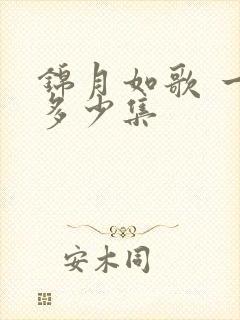 錦月如歌 一
多少集
安木同